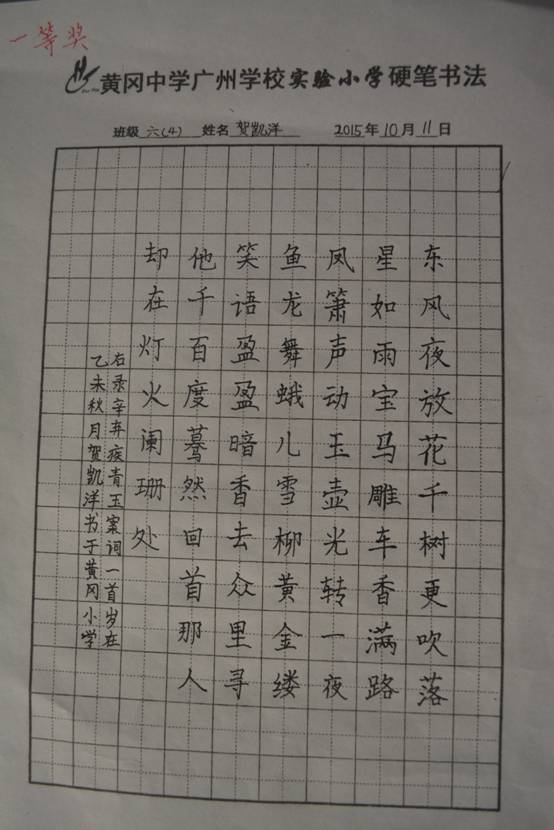 一等奖
黄冈中学广州学校实验小学硬笔书法
班级 六(4) 姓名 贺凯洋 2015年10月11日
东风夜放花千树更吹落
星如雨宝马雕车香满路
凤箫声动玉壶光转一夜
鱼龙舞蛾儿雪柳黄金缕
笑语盈盈暗香去众里寻
他千百度蓦然回首那人
却在灯火阑珊处
右录辛弃疾青玉案词一首岁在
乙未秋月贺凯洋书于黄冈小学